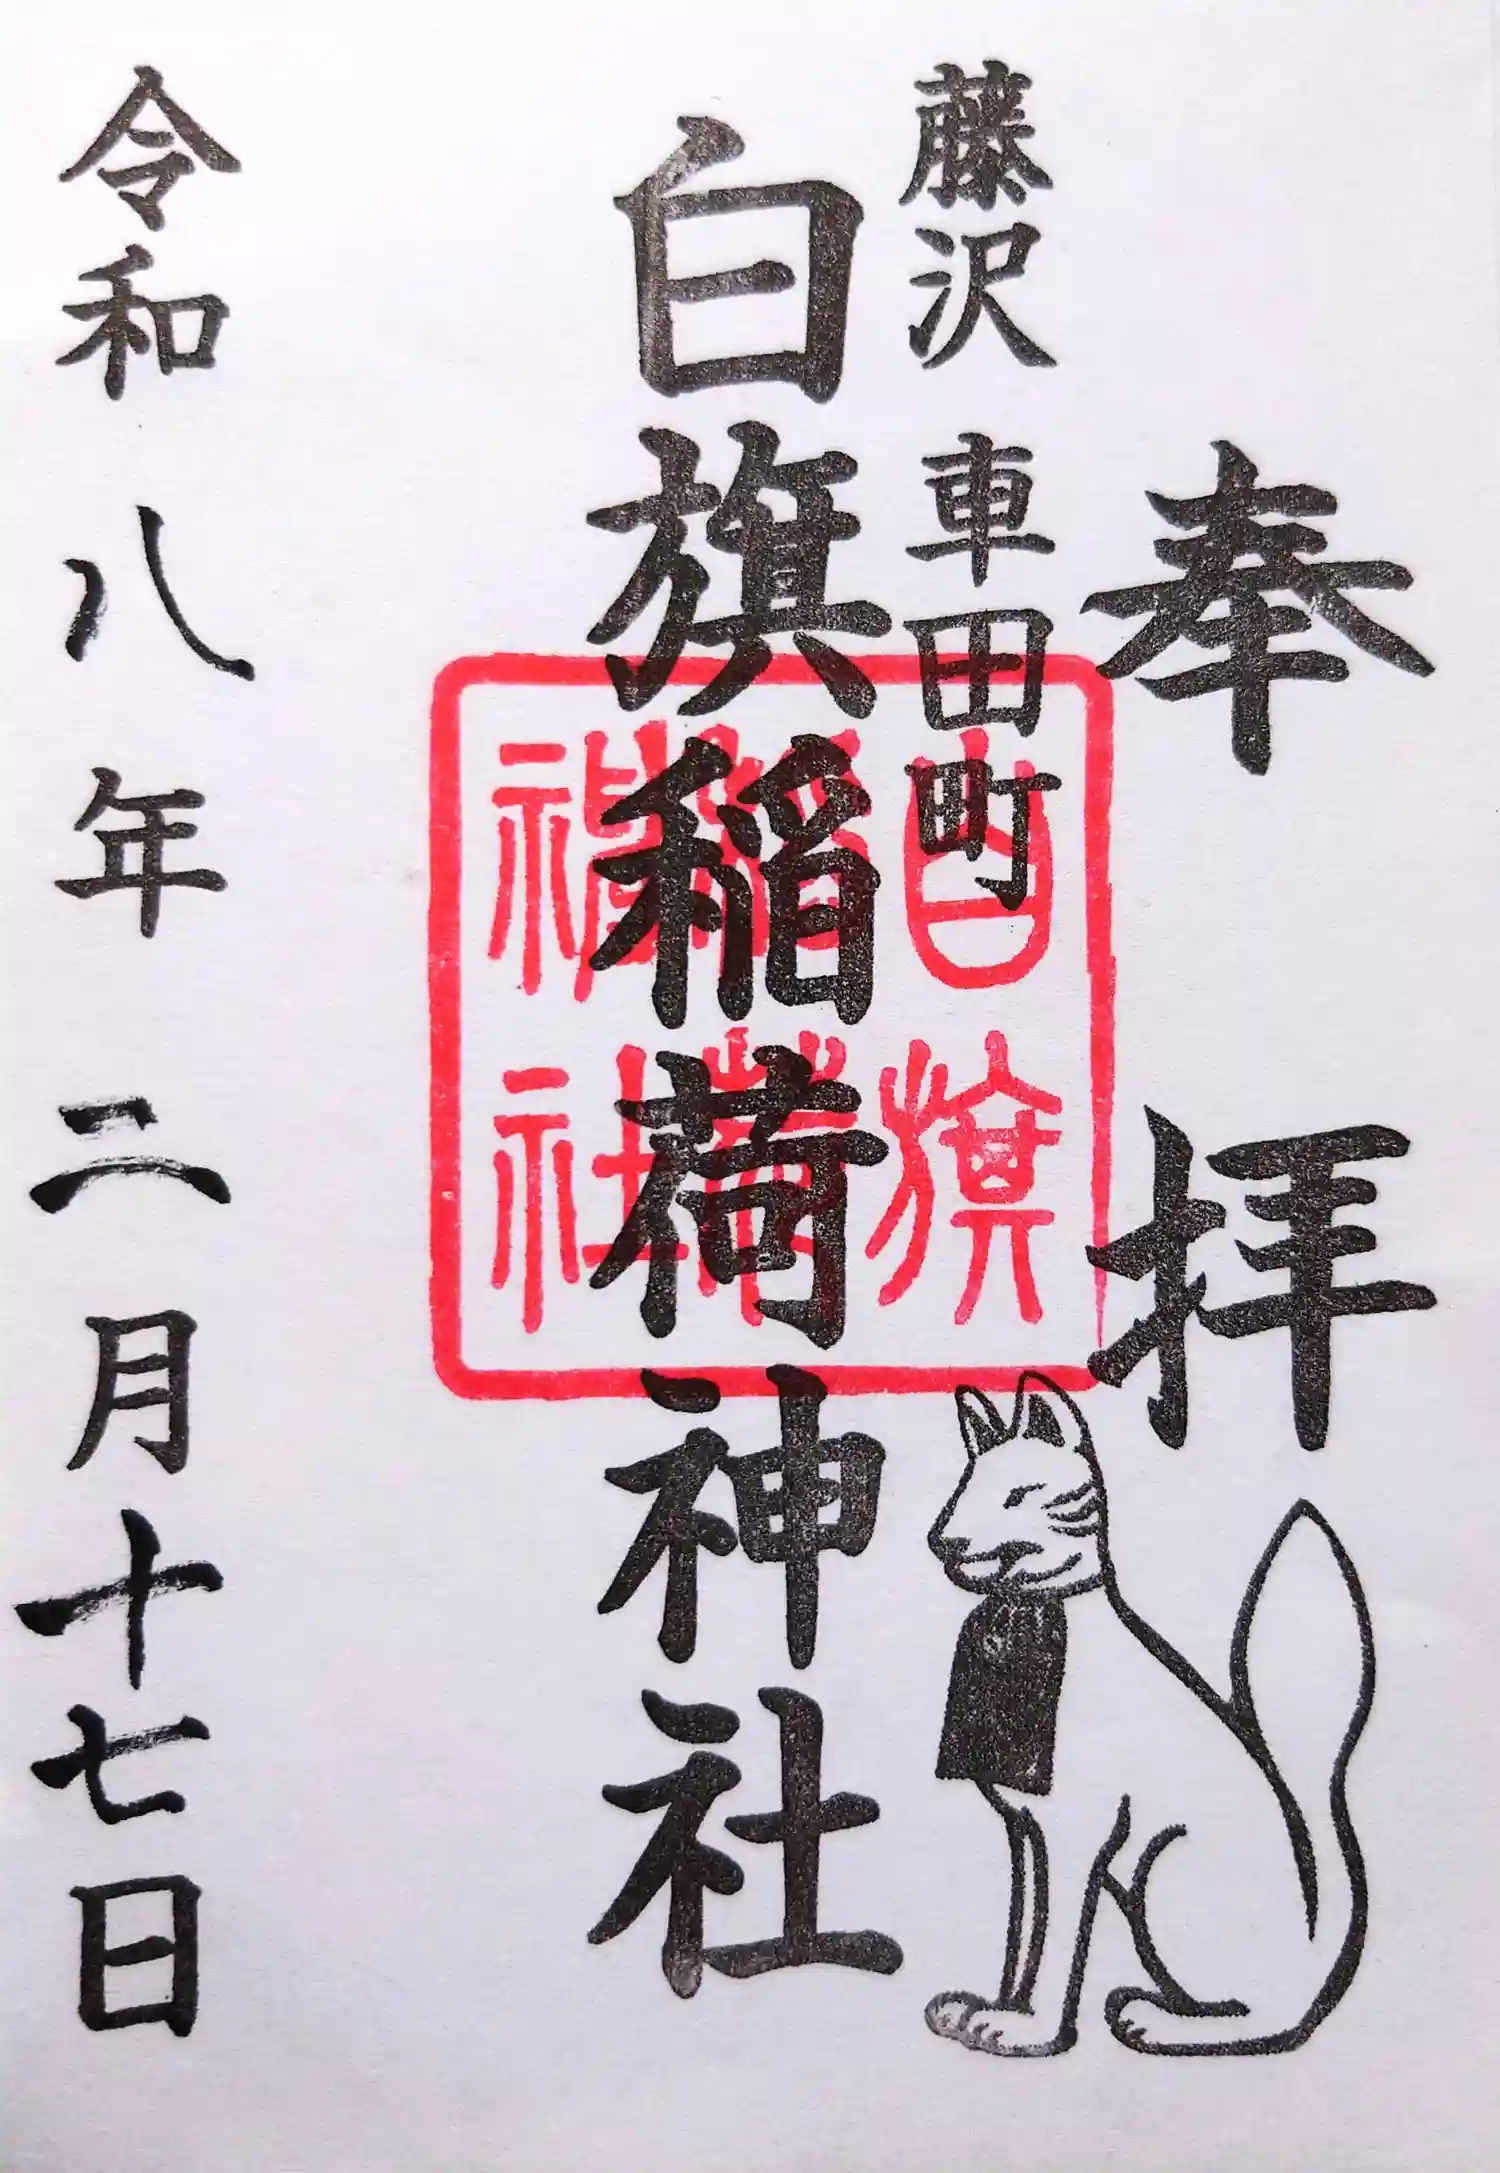 奉拝
藤沢 車田町
白旗稲荷神社
白旗
稲荷
神社
令和八年二月十七日